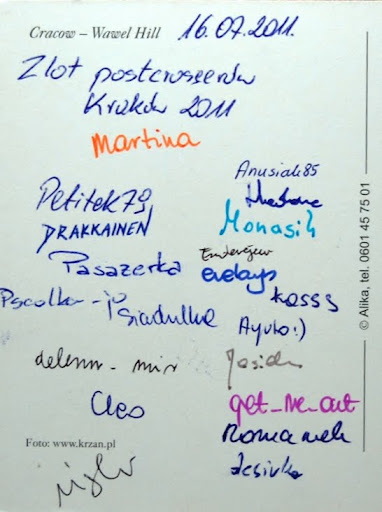 Cracow – Wawel Hill
16.07.2011.
Zlot postcrosserów
Kraków 2011
Martina
Anusiak85
Petitek79
DRAKKAINEN
Monasik
Pasazerka
evelays
kasss
Pscolka-
Psiadulka
Ayuko:)
delenn-mir
Josiek
Cleo
get_me_out
Romanek
desivka
Foto: www.krzan.pl
© Alika, tel. 0601 45 75 01